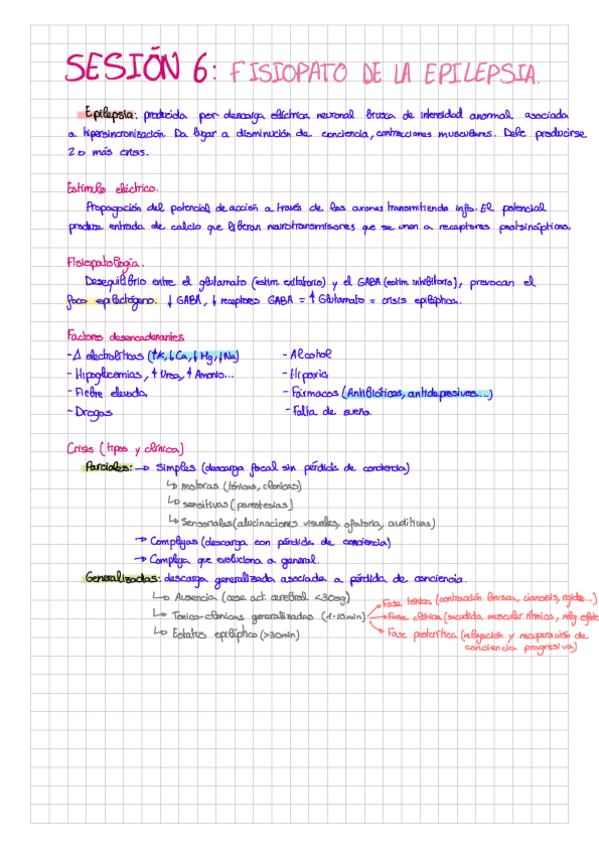 SESIÓN 6: FISIOPATO DE LA EPILEPSIA.
Epilepsia: producida por descarga eléctrica neuronal brusca de intensidad anormal asociada
a hipersincronización. Da lugar a disminución de conciencia, contracciones musculares. Debe producirse
2 o más crisis.
Estímulo eléctrico.
Propagación del potencial de acción a través de los axones transmitiendo info. El potencial
produce entrada de calcio que liberan neurotransmisores que se unen a receptores postsinápticos.
Fisiopatología.
Desequilibrio entre el glutamato (estim. excitatorio) y el GABA (estim. inhibitorio), provocan el
foco epileptógeno. ↓ GABA, ↓ receptores GABA = ↑ Glutamato = crisis epiléptica.
Factores desencadenantes
- Δ electrolíticas (↑K, ↓Ca, ↓Mg, ↓Na)
- Hipoglucemias, ↑ Urea, ↑ Amonio...
- Fiebre elevada.
- Drogas
- Alcohol
- Hipoxia
- Fármacos (Antibióticos, antidepresivos...)
- Falta de sueño
Crisis (tipos y clínica)
Parciales: → Simples (descarga focal sin pérdida de conciencia)
↳ motoras (tónicas, clonicas)
↳ sensitivas (parestesias)
↳ Sensoriales (alucinaciones visuales, olfatoria, auditivas)
→ Complejas (descarga con pérdida de conciencia)
→ Compleja que evoluciona a general.
Generalizadas: descarga generalizada asociada a pérdida de conciencia.
↳ Ausencia (cese act. cerebral <30sg)
↳ Tonico-clonicas generalizadas (1-10min)
↳ Estatus epiléptico (>30min)
Fase tónica (contracción brusca, cianosis, rigidez...)
Fase clónica (sacudida muscular rítmica,
Fase postcrítica (relajación y recuperación de
conciencia progresiva)